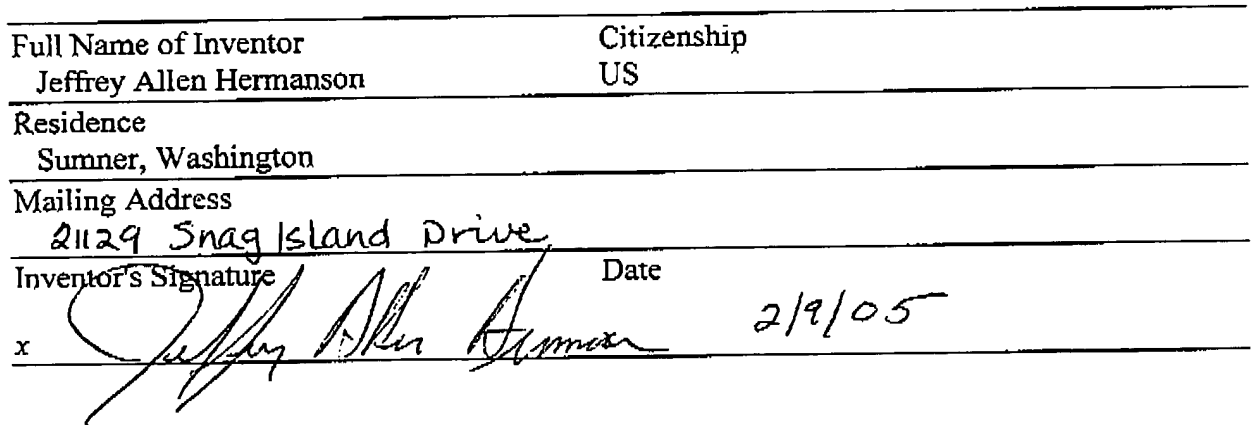 Full Name of Inventor Citizenship
Jeffrey Allen Hermanson US
Residence
Sumner, Washington
Mailing Address
21129 Snag Island Drive
Inventor's Signature Date
x Jeffrey Allen Hermanson 2/9/05